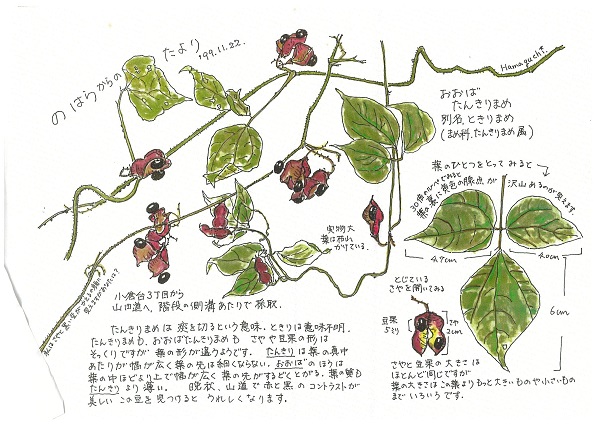 のはらからの たより '99.11.22.
Hamaguchi.
おおば
たんきりまめ
別名、ときりまめ
(まめ科.たんきりまめ属)
葉のひとつをとってみると
30倍のルーペでみると
葉の裏に黄色の腺点が
沢山あるのが見えます。
実物大
葉は花山、
かけている。
4.7cm
4.0cm
6cm
とじている
さやを開いてみる
豆果
5ミリ
さや
2cm
小倉台3丁目から
山田道へ、階段の側溝あたりで採取。
たんきりまめは 痰を切るという意味、ときりは意味不明。
たんきりまめも、おおばたんきりまめも さやや豆果の形は
そっくりですが 葉の形が違うようです。たんきりは葉の真中
あたりが幅が広く葉の先は細くならない。おおばのほうは
葉の中ほどより上で幅が広く 葉の先がするどくとがる。葉の質も
たんきりより薄い。 晩秋、山道で赤と黒のコントラストが
美しい この豆を見つけると うれしくなります。
さやと豆果の大きさは
ほとんど同じですが
葉の大きさはこの葉よりもっと大きいものや小さいもの
までいろいろです。